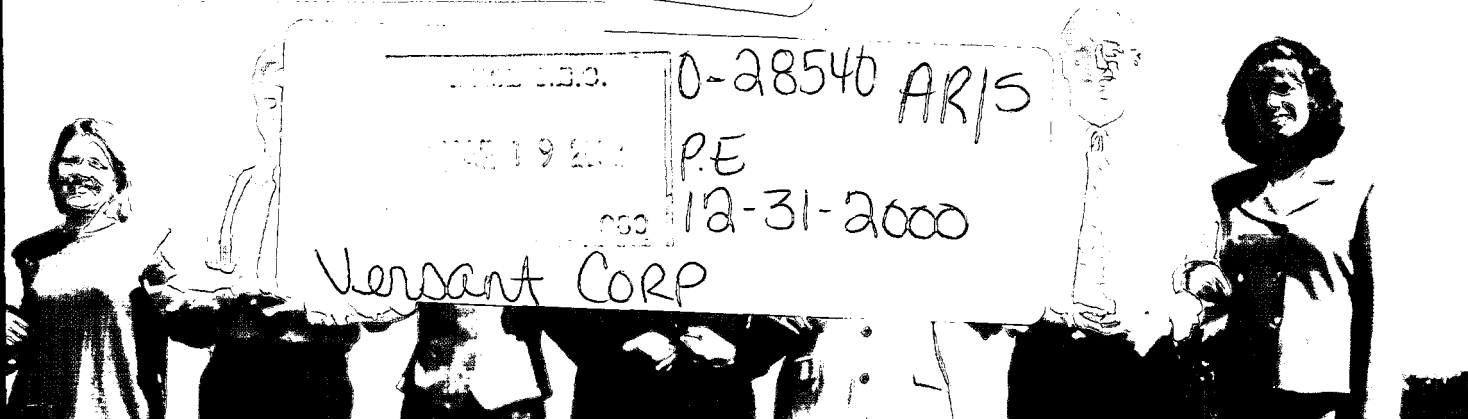 0-28540 AR/S
P.E
12-31-2000
Versant CORP